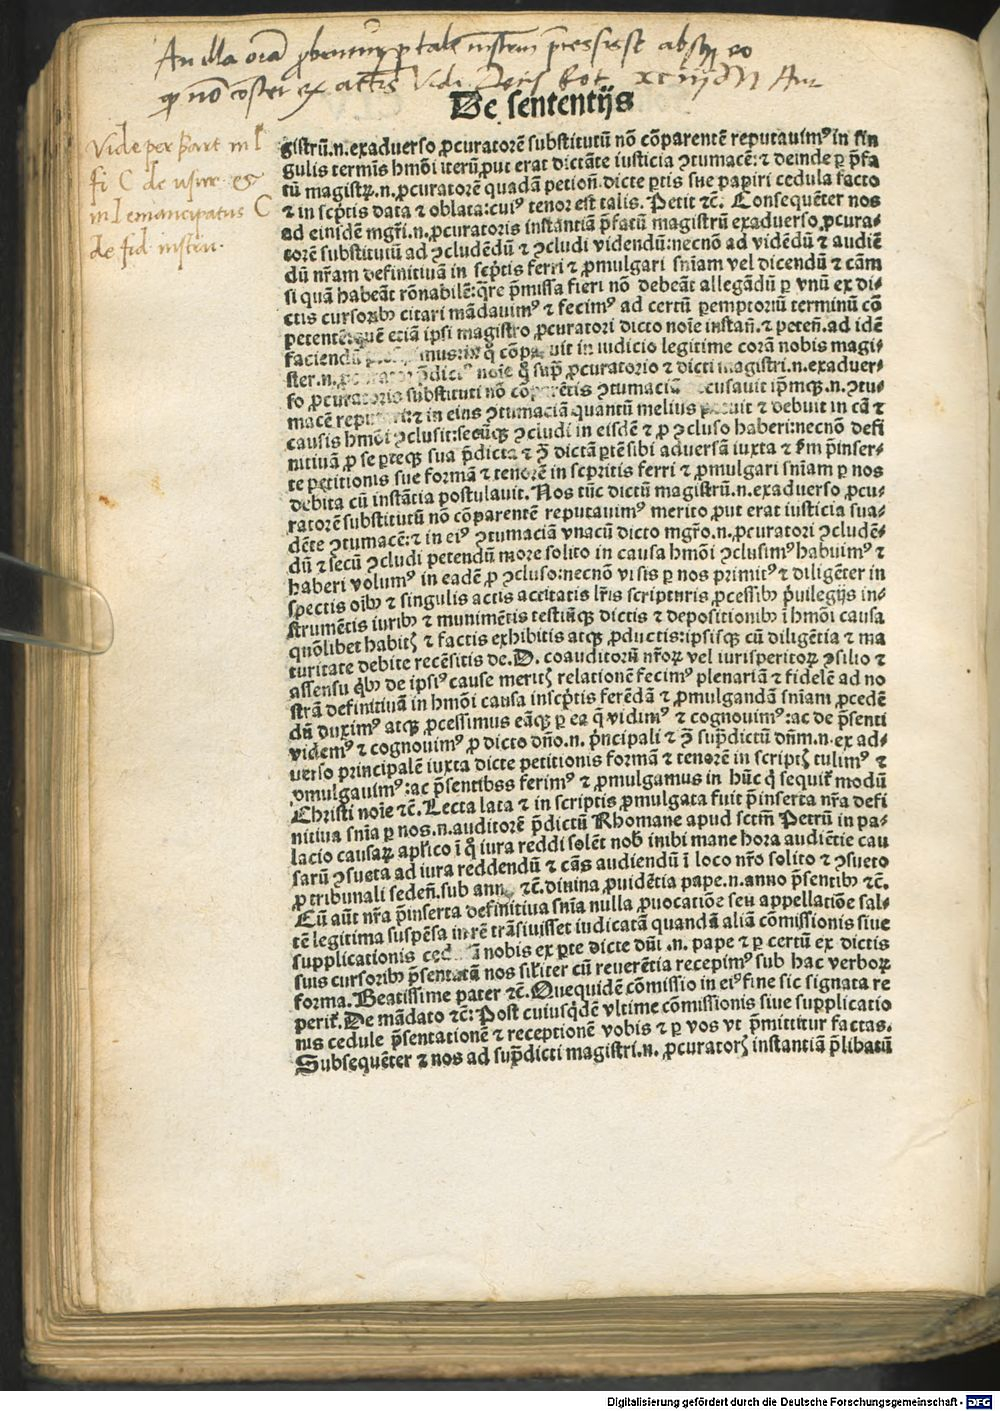 An illa oīa ꝓbentur ꝑ tale instrm̄ p̄cessisse absqꝫ eo
qꝫ nō costet ex actis Vidi Decis Rot.
De sententijs
Vide per Bart in l
fi C de usur. et
in l emancipatus C
de fid. instru.
gistrū.n.exaduerso ꝓcuratorē substitutū nō cōparentē reputauimꝰ in sin
gulis termīs hmōi iterū ꝓut erat dictāte iusticia ꝯtumacē: ⁊ deinde ꝑ p̄fa
tū magistꝝ.n.ꝓcuratorē quadā petionē dicte ꝑtis sue papiri cedula facto
⁊ in scp̄tis data ⁊ oblata:cuiꝰ tenor est talis. Petit ⁊c̄. Consequēter nos
ad eiusdē mgr̄i.n.ꝓcuratoris instantiā p̄fatū magistrū exaduerso ꝓcura-
torē substitutū ad ꝯcludēdū ⁊ ꝯcludi videndū:necnō ad vidēdū ⁊ audiē
dū nr̄am definitiuā in scp̄tis ferri ⁊ ꝓmulgari sn̄iam vel dicendū ⁊ cām
si quā habeāt rōnabilē:qr̄e p̄missa fieri nō debeāt allegādū ꝑ vnū ex di-
ctis cursoribꝰ citari mādauimꝰ ⁊ fecimꝰ ad certū ꝑemptoriū terminū cō
petentē:quē etiā ipsi magistro ꝓcuratori dicto noīe instañ.⁊ peteñ.ad idē
faciendū p musrin qͦ cōpa uit in iudicio legitime corā nobis magi-
ster.n.ꝓcurator p̄dictꝰ noīe qͦ supͣ ꝓcuratorio ⁊ dicti magistri.n.exaduer-
so ꝓcuratorio substituti nō cōparētis ꝯtumaciā accusauit ip̄mqꝫ.n.ꝯtu-
macē reputari:⁊ in eius ꝯtumaciā quantū melius potuit ⁊ debuit in cā ⁊
causis hmōi ꝯclusit:secūqꝫ ꝯcludi in eisdē ⁊ ꝓ ꝯcluso haberi:necnō defi
nitiuā ꝓ se ꝑteqꝫ sua p̄dicta ⁊ ꝯͣ dictā ꝑtē sibi aduersā iuxta ⁊ ẜm p̄inser-
te petitionis sue formā ⁊ tenorē in scp̄ritis ferri ⁊ ꝓmulgari sn̄iam ꝑ nos
debita cū instātia postulauit. Nos tūc dictū magistrū.n.exaduerso ꝓcu-
ratorē substitutū nō cōparentē reputauimꝰ merito ꝓut erat iusticia sua-
dēte ꝯtumacē:⁊ in eiꝰ ꝯtumaciā vnacū dicto mgr̄o.n.ꝓcuratori ꝯcludē-
dū ⁊ secū ꝯcludi petendū more solito in causa hmōi ꝯclusimꝰ habuimꝰ ⁊
haberi volumꝰ in eadē ꝓ ꝯcluso:necnō visis ꝑ nos primitꝰ ⁊ diligēter in
spectis oībꝰ ⁊ singulis actis actitatis lr̄is scripturis ꝓcessibꝰ p̄uilegijs in-
strumētis iuribꝰ ⁊ munimētis testiūqꝫ dictis ⁊ depositionibꝰ ī hmōi causa
quōlibet habitꝭ ⁊ factis exhibitis atqꝫ ꝓductis:ipsisqꝫ cū diligētia ⁊ ma
turitate debite recēsitis de.D. coauditorū nr̄oꝝ vel iurisperitoꝝ ꝯsilio ⁊
assensu qͥbꝰ de ipsiꝰ cause meritꝭ relationē fecimꝰ plenariā ⁊ fidelē ad no
strā definitiuā in hmōi causa inscp̄tis ferēdā ⁊ ꝓmulgandā sn̄iam ꝓcedē
dū duximꝰ atqꝫ ꝓcessimus eāqꝫ ꝑ ea q̄ vidimꝰ ⁊ cognouimꝰ:ac de p̄senti
videmꝰ ⁊ cognouimꝰ ꝓ dicto dn̄o.n. p̄ncipali ⁊ ꝯͣ supͣdictū dn̄m.n.ex ad-
uerso principalē iuxta dicte petitionis formā ⁊ tenorē in scriptꝭ tulimꝰ ⁊
ꝓmulgauimꝰ:ac p̄sentibss ferimꝰ ⁊ ꝓmulgamus in hūc q̄ sequit̄ modū
Christi noīe ⁊c̄. Lecta lata ⁊ in scriptis ꝓmulgata fuit p̄inserta nr̄a defi
nitiua sn̄ia ꝑ nos.n.auditorē p̄dictū Rhomane apud sctm̄ Petrū in pa-
lacio causaꝝ apl̄ico ī qͦ iura reddi solēt nob̄ inibi mane hora audiētie cau
sarū ꝯsueta ad iura reddendū ⁊ cās audiendū ī loco nr̄o solito ⁊ ꝯsueto
ꝓ tribunali sedeñ.sub anno ⁊c̄. diuina ꝓuidētia pape.n.anno p̄sentibꝰ ⁊c̄.
Cū aūt nr̄a p̄inserta definitiua sn̄ia nulla ꝓuocatiōe seu appellatiōe sal-
tē legitima suspēsa in rē trāsiuisset iudicatā quandā aliā cōmissionis siue
supplicationis cedulā nobis ex ꝑte dicte dn̄i .n. pape ⁊ ꝑ certū ex dictis
suis cursoribꝰ p̄sentatā nos sil̄iter cū reuerētia recepimꝰ sub hac verboꝝ
forma. Beatissime pater ⁊c̄. Quequidē cōmissio in eiꝰ fine sic signata re
perit̄. De mādato ⁊c̄: Post cuiusqͥdē vltime cōmissionis siue supplicatio
nis cedule p̄sentationē ⁊ receptionē vobis ⁊ ꝑ vos vt p̄mittitur factas.
Subsequēter ⁊ nos ad supͣdicti magistri.n. ꝓcuratorꝭ instantiā p̄libatū
Digitalisierung gefördert durch die Deutsche Forschungsgemeinschaft - DFG